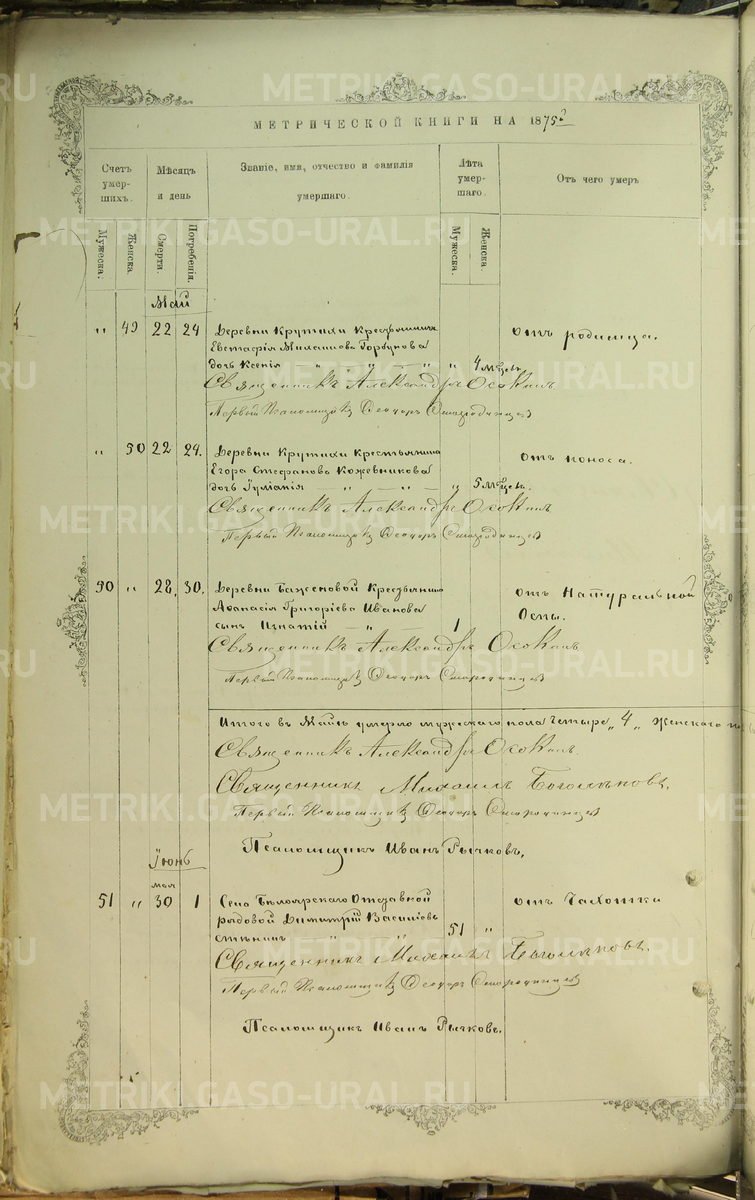 МЕТРИЧЕСКОЙ КНИГИ НА 1875 г
Счетъ умершихъ.
Мѣсяцъ и день
Званіе, имя, отчество и фамилія умершаго.
Лѣта умершаго.
Отъ чего умеръ
Мужеска.
Женска.
Смерти.
Погребенія.
Мужеска.
Женска.
Май
„ 49 22 24 Деревни Крутихи Крестьянина отъ родимца.
Евстафія Горбунова
дочь Ксенія „ „ „ 4 мѣсец.
Священникъ Александръ Осокинъ
Первый Псаломщикъ Ѳеодоръ
„ 50 22 24. Деревни Крутихи Крестьянина отъ поноса.
Егора Стефанова Кожевникова
дочь Іуліанія „ „ „ 5 мѣсец.
Священникъ Александръ Осокинъ
Первый Псаломщикъ Ѳеодоръ
„ 28. 30. Деревни Баженовой Крестьянина отъ Натуральной
Аѳанасія Григоріева Иванова Оспы.
сынъ Игнатій — „ — 1
Священникъ Александръ Осокинъ
Первый Псаломщикъ Ѳеодоръ
Итого въ Маѣ умерло мужескаго пола четыре „4„ Женскаго
Священникъ Александръ Осокинъ.
Священникъ Михаилъ
Первый Псаломщикъ Ѳеодоръ
Псаломщикъ Иванъ Рычковъ.
Іюнь
мая
51 „ 30 1 Села Бѣлоярскаго Отставной отъ Чахотки
рядовой Димитрій Василіевъ
„ „ 51 „
Священникъ Михаилъ
Первый Псаломщикъ Ѳеодоръ
Псаломщикъ Иванъ Рычковъ.
METRIKI.GASO-URAL.RU